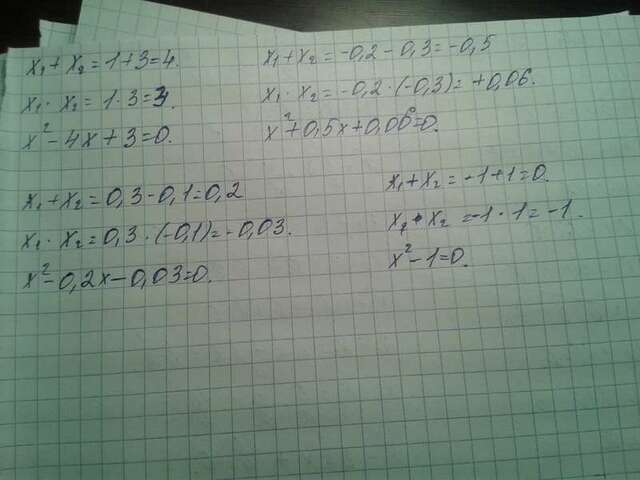 x₁ + x₂ = 1 + 3 = 4.
x₁ · x₂ = 1 · 3 = 3.
x² - 4x + 3 = 0.
x₁ + x₂ = -0,2 - 0,3 = -0,5
x₁ · x₂ = -0,2 · (-0,3) = +0,06.
x² + 0,5x + 0,06 = 0.
x₁ + x₂ = 0,3 - 0,1 = 0,2
x₁ · x₂ = 0,3 · (-0,1) = -0,03.
x² - 0,2x - 0,03 = 0.
x₁ + x₂ = -1 + 1 = 0.
x₁ · x₂ = -1 · 1 = -1.
x² - 1 = 0.